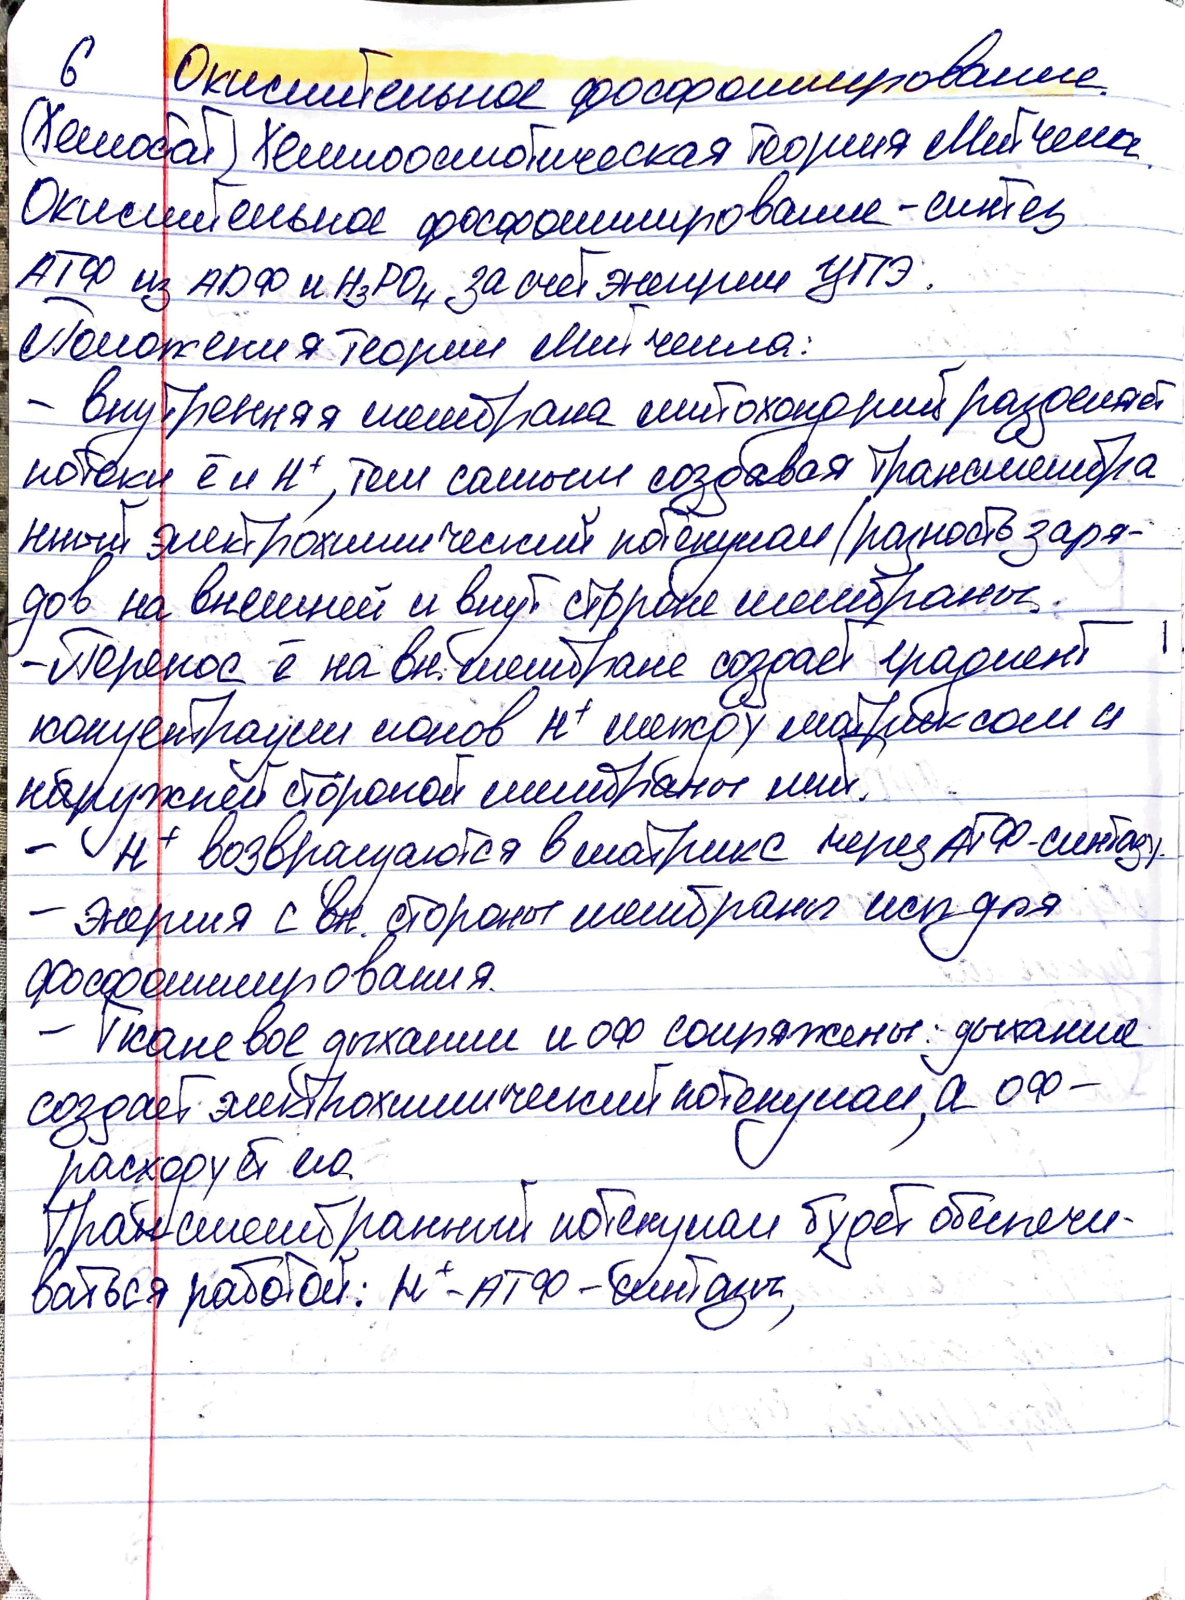 6 Окислительное фосфорилирование.
(Хемостат) Хемиоосмотическая теория Митчела.
Окислительное фосфорилирование - синтез
АТФ из АДФ и H₃PO₄ за счёт энергии ЦПЭ.
Положения теории Митчелла:
- внутренняя мембрана митохондрий разделяет
потоки ē и H⁺, тем самым создавая трансмембра
нный электрохимический потенциал (разность заря-
дов на внешней и внут стороне мембраны.
- Перенос ē на вн. мембране создаёт градиент
концентрации ионов H⁺ между матриксом и
наружней стороной мембраны мит.
- H⁺ возвращаются в матрикс через АТФ-синтазу.
- Энергия с вн. стороны мембраны исп для
фосфорилирования.
- Тканевое дыхании и ОФ сопряжены: дыхание
создаёт электрохимический потенциал, а ОФ -
расходует его
Трансмембранный потенциал будет обеспечи-
ваться работой: H⁺-АТФ-синтазы,